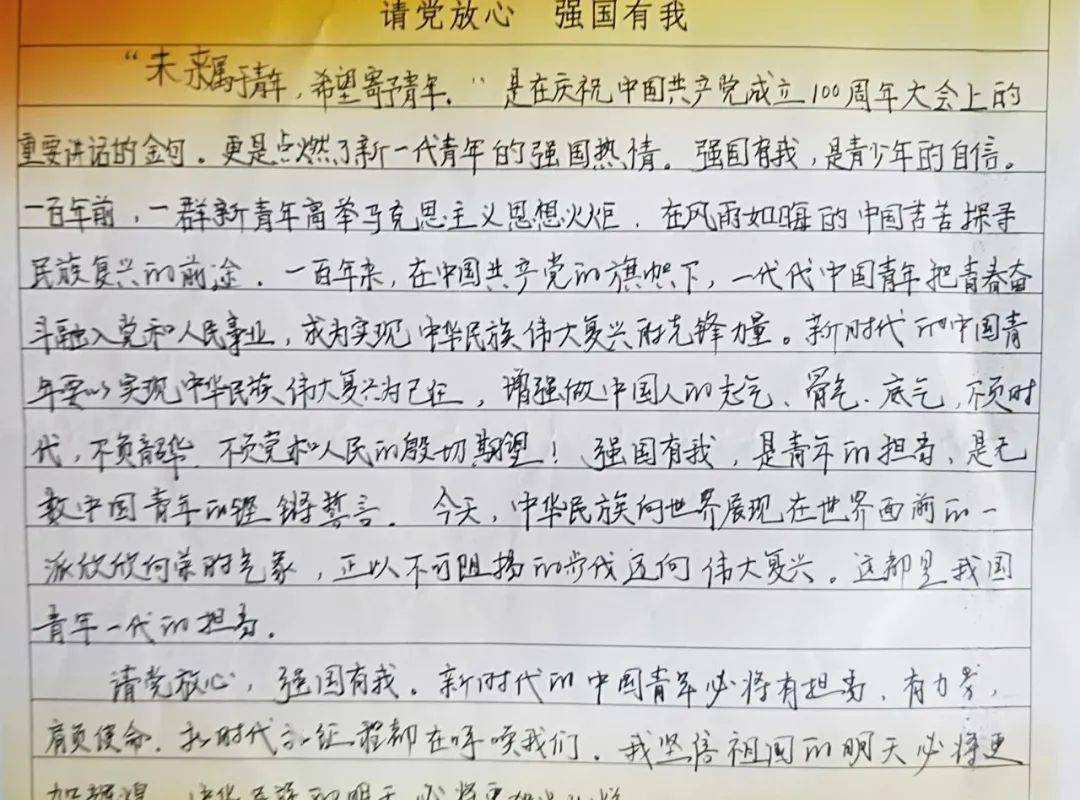 请党放心 强国有我
“未来属于青年，希望寄予青年。”是在庆祝中国共产党成立100周年大会上的
重要讲话的金句。更是点燃了新一代青年的强国热情。强国有我，是青少年的自信。
一百年前，一群新青年高举马克思主义思想火炬，在风雨如晦的中国苦苦探寻
民族复兴的前途。一百年来，在中国共产党的旗帜下，一代代中国青年把青春奋
斗融入党和人民事业，成为实现中华民族伟大复兴的先锋力量。新时代的中国青
年要以实现中华民族伟大复兴为己任，增强做中国人的志气、骨气、底气，不负时
代，不负韶华，不负党和人民的殷切期望！强国有我，是青年的担当，是无
数中国青年的铿锵誓言。今天，中华民族向世界展现在世界面前的一
派欣欣向荣的气象，正以不可阻挡的步伐迈向伟大复兴。这都是我国
青年一代的担当。
请党放心，强国有我。新时代的中国青年必将有担当，有力量，
肩负使命，时代征程都在呼唤我们。我坚信祖国的明天必将更
加辉煌，中华民族的明天必将更加